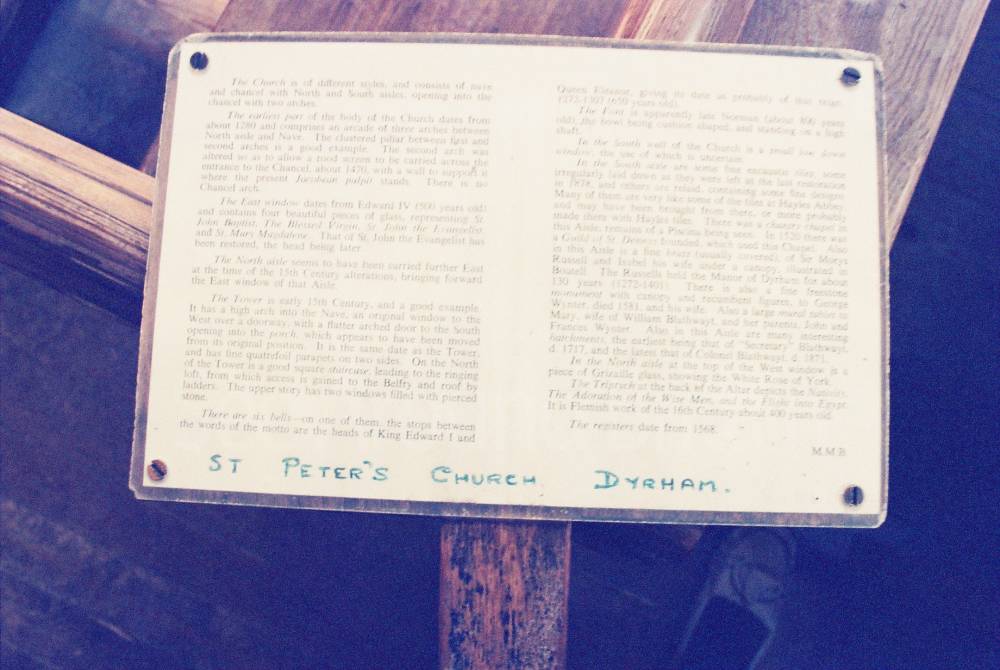 The Church is of different styles, and consists of nave
and chancel with North and South aisles, opening into the
chancel with two arches.
The earliest part of the body of the Church dates from
about 1280 and comprises an arcade of three arches between
North aisle and Nave. The clustered pillar between first and
second arches is a good example. The second arch was
altered so as to allow a rood screen to be carried across the
entrance to the Chancel, about 1470, with a wall to support it
where the present Jacobean pulpit stands. There is no
Chancel arch.
The East window dates from Edward IV (500 years old)
and contains four beautiful pieces of glass, representing St.
John Baptist, The Blessed Virgin, St. John the Evangelist
and St. Mary Magdalene. That of St. John the Evangelist has
been restored, the head being later.
The North aisle seems to have been carried further East
at the time of the 15th Century alterations, bringing forward
the East window of that Aisle.
The Tower is early 15th Century, and a good example.
It has a high arch into the Nave, an original window to the
West over a doorway, with a flatter arched door to the South
opening into the porch, which appears to have been moved
from its original position. It is the same date as the Tower,
and has fine quatrefoil parapets on two sides. On the North
of the Tower is a good square staircase, leading to the ringing
loft, from which access is gained to the Belfry and roof by
ladders. The upper story has two windows filled with pierced
stone.
There are six bells—on one of them, the stops between
the words of the motto are the heads of King Edward I and
Queen Eleanor, giving its date as probably of that reign
(272-1307 (650 years old).
The Font is apparently late Norman (about 800 years
old), the bowl being cushion shaped, and standing on a high
shaft.
In the South wall of the Church is a small low down
window, the use of which is uncertain.
In the South aisle are some fine encaustic tiles, some
irregularly laid down as they were left at the last restoration
in 1878, and others are relaid, containing some fine designs.
Many of them are very like some of the tiles at Hayles Abbey,
and may have been brought from there, or more probably
made there with Hayles tiles. There was a chantry chapel in
this Aisle, remains of a Piscina being seen. In 1520 there was
a Guild of St. Denys founded, which used this Chapel. Also
in this Aisle is a fine brass (usually covered), of Sir Morys
Russell and Isobel his wife, under a canopy, illustrated in
Boutell. The Russells held the Manor of Dyrham for about
130 years (1272-1401). There is also a fine freestone
monument with canopy and recumbent figures, to George
Wynter, died 1581, and his wife. Also a large mural tablet to
Mary, wife of William Blathwayt, and her parents, John and
Frances Wynter. Also in this Aisle are many interesting
hatchments, the earliest being that of "Secretary" Blathwayt,
d. 1717, and the latest that of Colonel Blathwayt, d. 1871.
In the North aisle at the top of the West window is a
piece of Grizaille glass, showing the White Rose of York.
The Triptych at the back of the Altar depicts the Nativity,
The Adoration of the Wise Men, and the Flight into Egypt.
It is Flemish work of the 16th Century about 400 years old.
The registers date from 1568.
M.M.B.
ST PETER'S CHURCH DYRHAM.